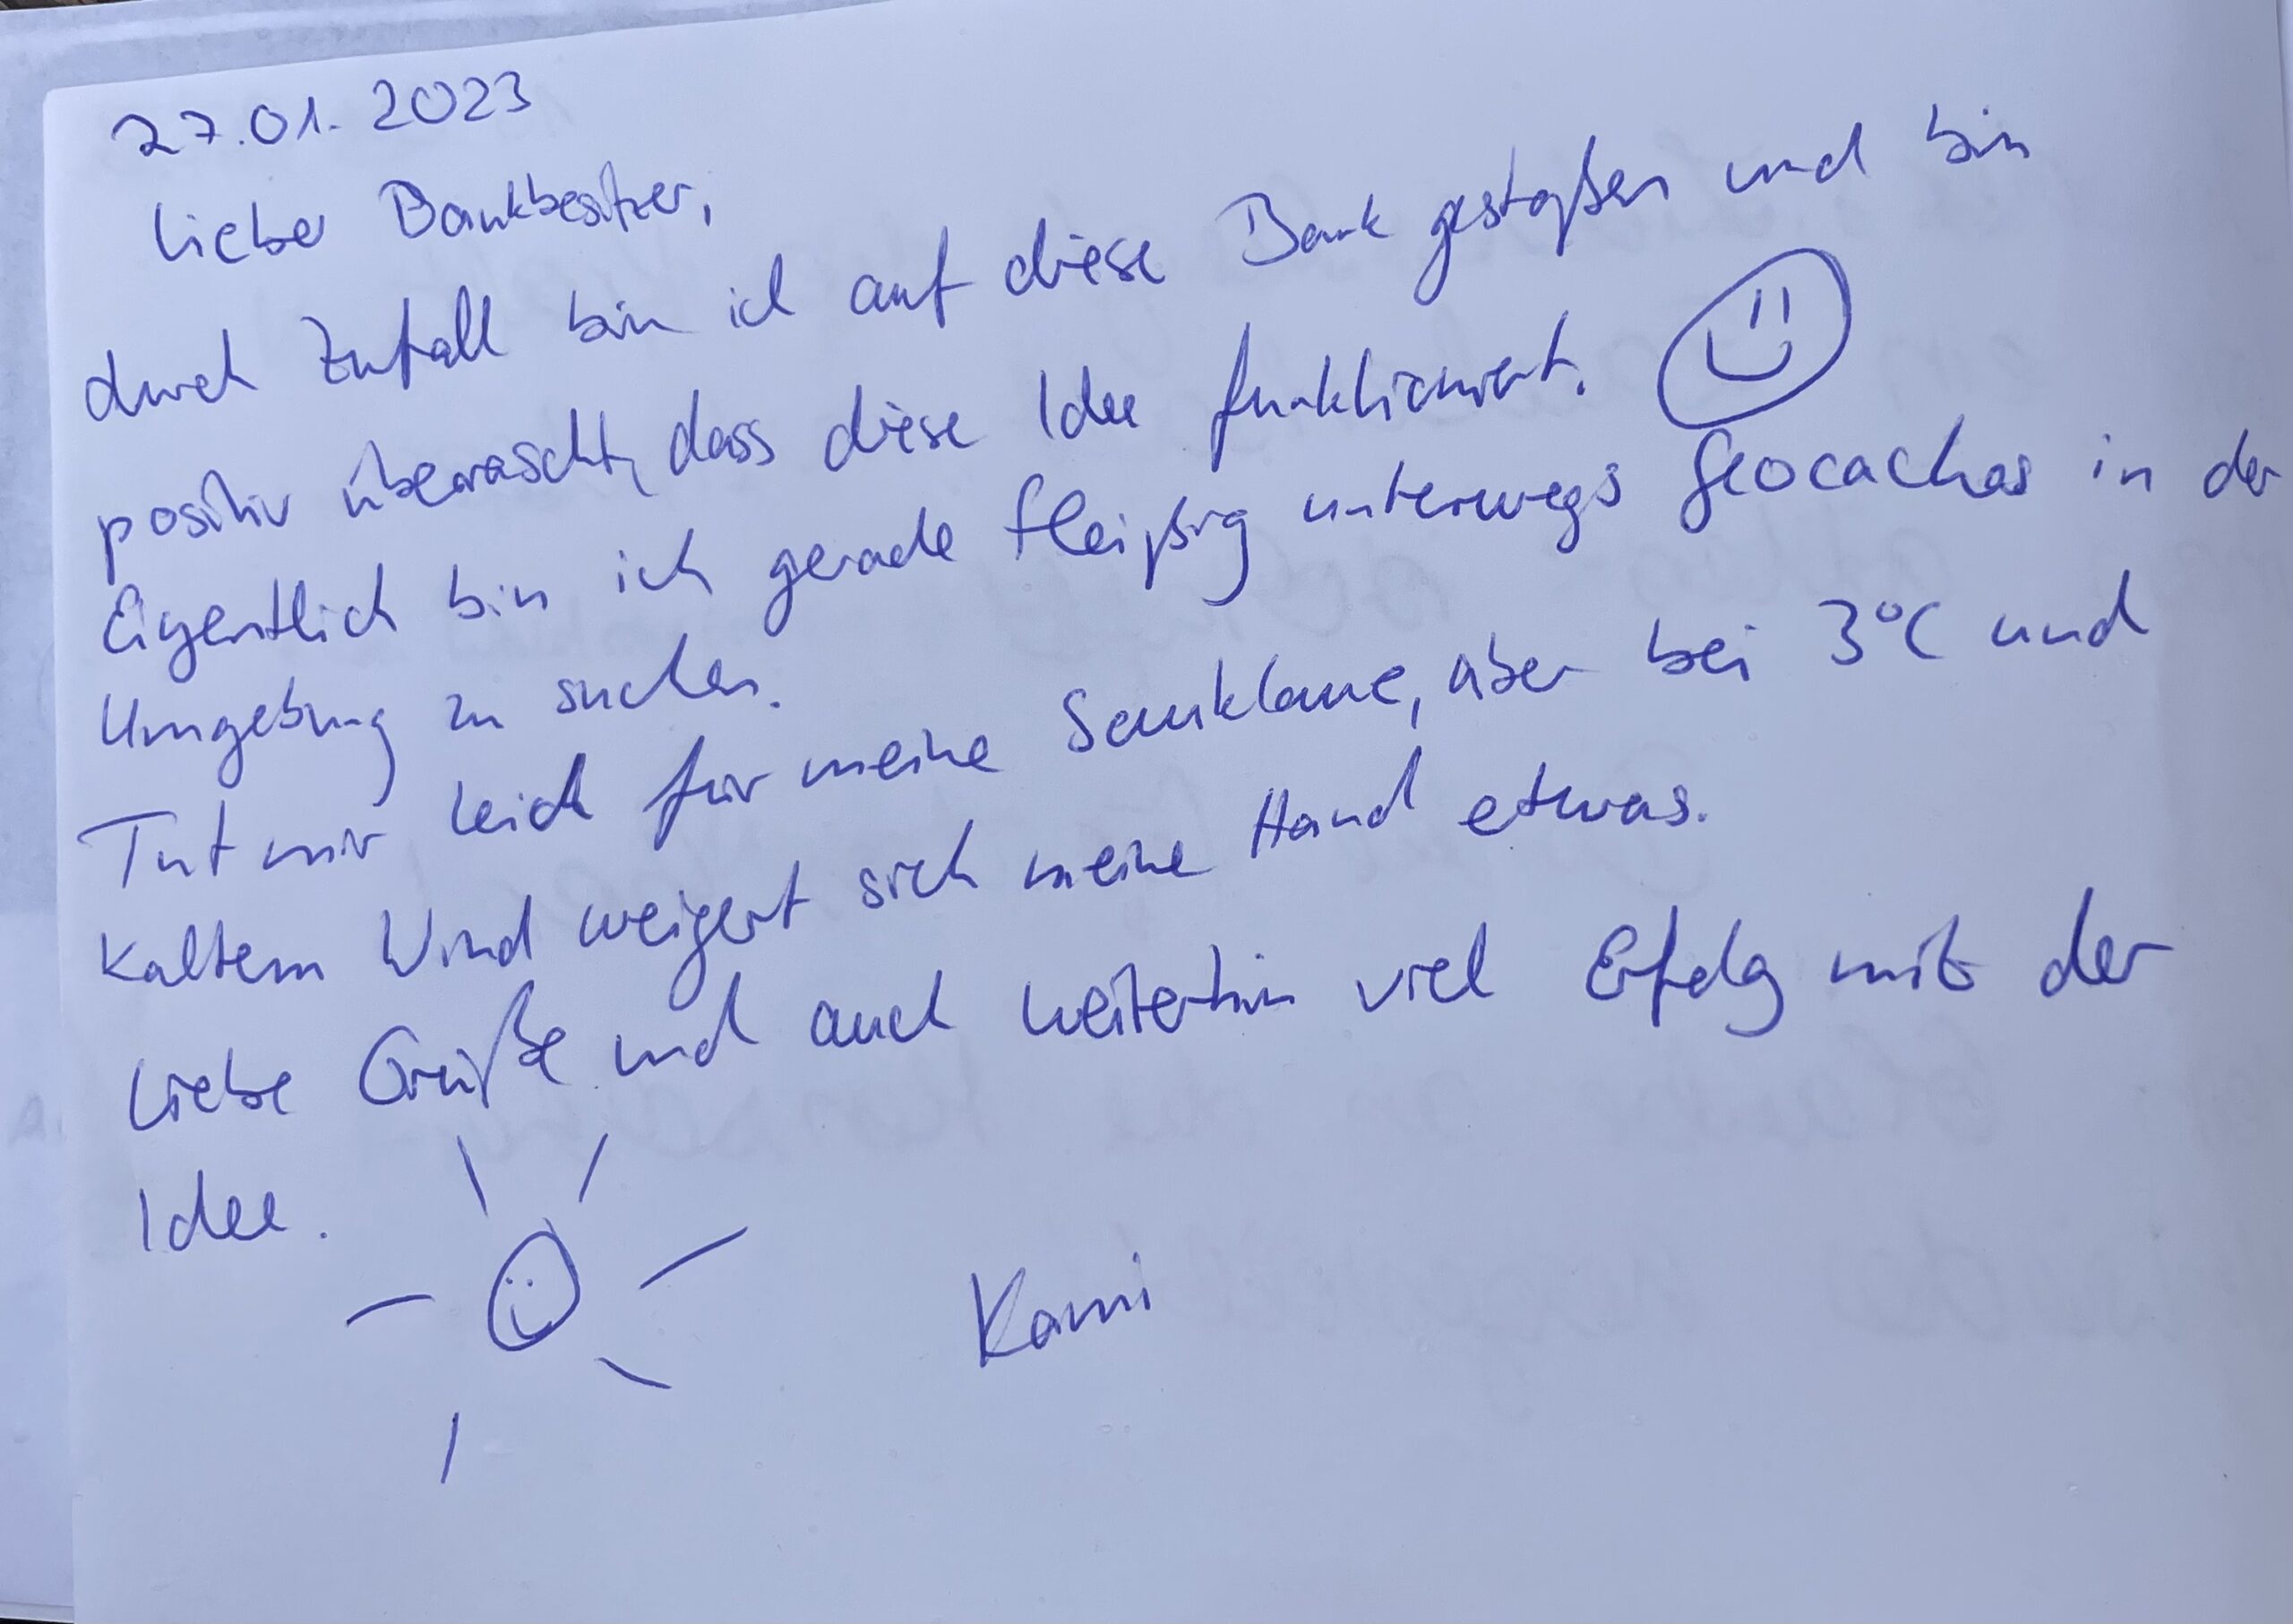 27.01.2023
Lieber Bankbesitzer,
durch Zufall bin ich auf diese Bank gestoßen und bin
positiv überrascht, dass diese Idee funktioniert.
Eigentlich bin ich gerade fleißig unterwegs Geocaches in der
Umgebung zu suchen.
Tut mir leid für meine Sauklaue, aber bei 3°C und
kaltem Wind weigert sich meine Hand etwas.
Liebe Grüße und auch weiterhin viel Erfolg mit der
Idee.
Kami